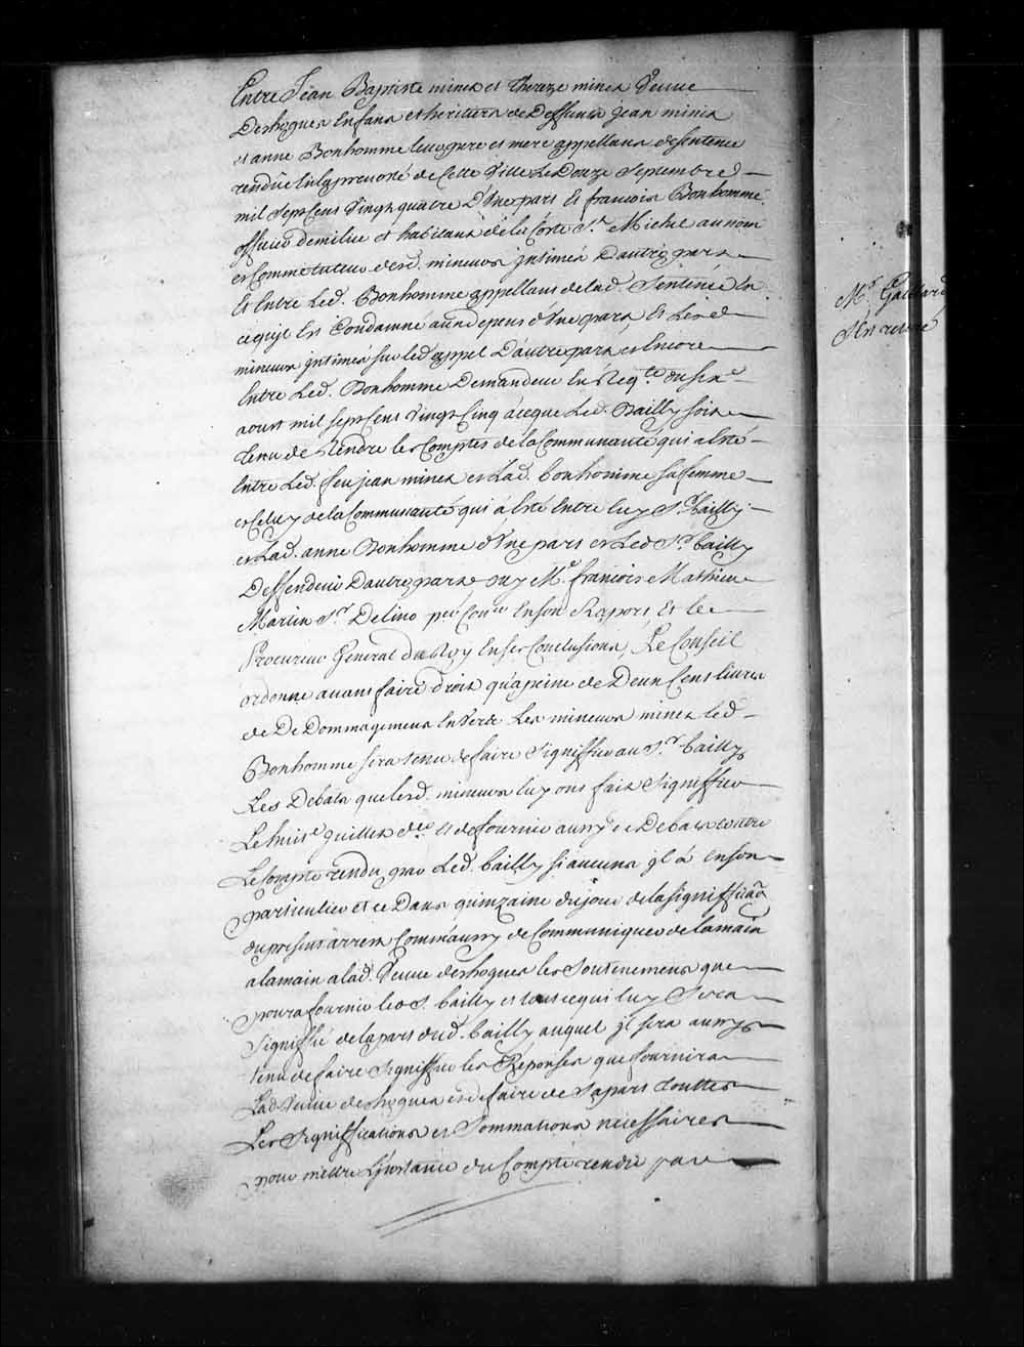 Entre Jean Baptiste minet et Thereze minet Veuve
Deshogues Enfans et heritiers de Deffunts Jean minet
et anne Bonhomme leurs pere et mere appellans de sentence
rendue En la prevosté de Cette Ville Le Douze Septembre
mil Sept Cens Vingt quatre D'Une part Et francois Bonhomme
officier de milice et habitant de la Coste St. Michel au nom
et Comme tuteur desd. mineurs jntimés D'autre part
Et Entre Led. Bonhomme appellant de lad. Sentence En
ce qu'jl Est Condamné aux depens d'Une part, Et Lesd.
mineurs jntimés sur led. appel D'autre part et Encore
Entre Led. Bonhomme Demandeur En Reqte. du six
aoust mil sept Cens Vingt Cinq à ce que Led. Bailly soit
tenu de Rendre les Comptes de la Communauté qui a Esté
Entre Led. feu jean minet et Lad. bonhomme sa femme
et Celuy de la Communauté qui à Esté Entre luy Sr. bailly
et Lad. anne Bonhomme d'Une part et Led. Sr. bailly
Deffendeur D'autre part ouy Me. francois Mathieu
Martin Sr. Delino per. Coner. En son Raport, Et le
Procureur General du Roy En ses Conclusions, Le Conseil
ordonne avant faire droit qu'a peine de Deux Cens livres
de De Dommagemens Envers Les mineurs minet led.
Bonhomme sera tenu de faire Signiffier au Sr. bailly
Les Debats que lesd. mineurs luy ont fait Signiffier
Le huite. juillet der. Et de fournir aussy ce Debats contre
Le Compte rendu par Led. bailly si aucuns jl à En son
particulier et ce Dans quinzaine du jour de la Signiffica͠on
du present arrest Comm'aussy de Communiquer de la main
a la main a lad. Veuve deshogues les Soutenemens que
poura fournir led. S. bailly et tout ce qui luy Sera
Signiffié de la part dud. bailly auquel jl sera aussy
tenu de faire Signiffier les Réponses que fournira
Lad. Veuve deshogues et de faire de Sa part touttes
Les Signiffications et Sommations necessaires
pour mettre L'jnstance du Compte rendu par
Mr. Gaillard
S'En retire